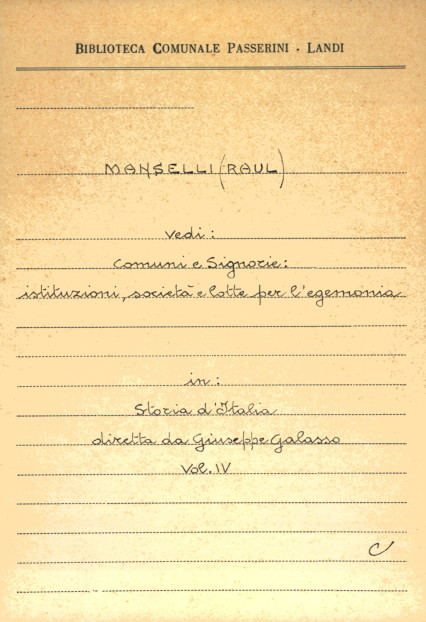 BIBLIOTECA COMUNALE PASSERINI - LANDI
MANSELLI (RAUL)
vedi:
Comuni e Signorie:
istituzioni, società e lotte per l'egemonia
in:
Storia d'Italia
diretta da Giuseppe Galasso
Vol. IV
C